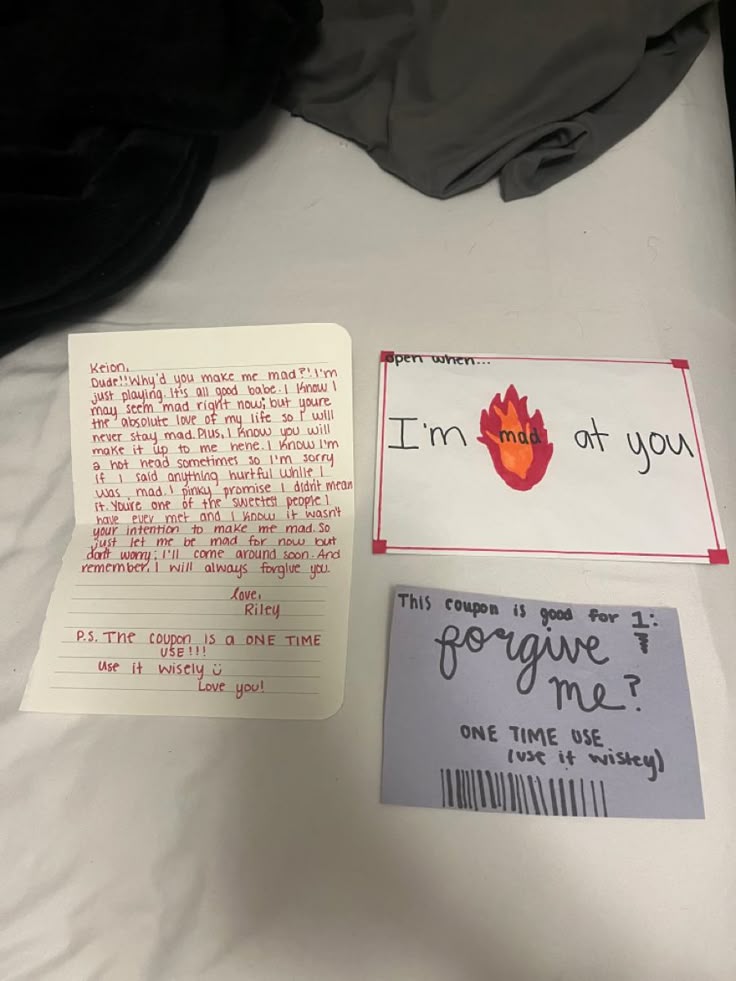 Keion,
Dude!! Why'd you make me mad?! I'm
just playing. It's all good babe. I know I
may seem mad right now, but youre
the absolute love of my life so I will
never stay mad. Plus, I know you will
make it up to me hehe. I know I'm
a hot head sometimes so I'm sorry
if I said anything hurtful while I
was mad. I pinky promise I didn't mean
it. You're one of the sweetest people I
have ever met and I know it wasn't
your intention to make me mad. So
just let me be mad for now but
don't worry; I'll come around soon. And
remember, I will always forgive you.
love,
Riley
P.S. The coupon is a ONE TIME
USE!!!
Use it wisely
Love you!
open when...
I'm mad at you
This coupon is good for 1:
forgive
me?
ONE TIME USE
(use it wisley)